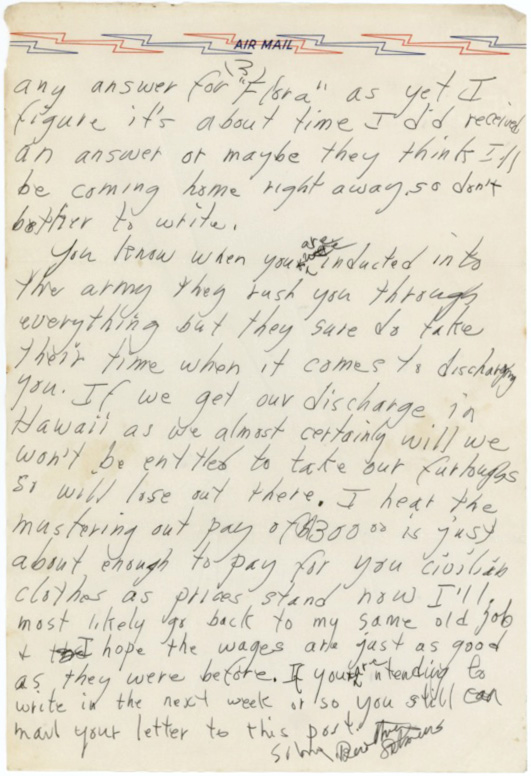 AIR MAIL
3
any answer for "Flora" as yet I
figure it's about time I did received
an answer or maybe they think I'll
be coming home right away, so don't
bother to write.
You know when you are inducted into
the army they rush you through
everything but they sure do take
their time when it comes to discharging
you. If we get our discharge in
Hawaii as we almost certainly will we
won't be entitled to take our furloughs
so will lose out there. I hear the
mustering out pay of $300 00 is just
about enough to pay for you civilian
clothes as prices stand now I'll.
most likely go back to my same old job
+ I hope the wages are just as good
as they were before. If you are intending to
write in the next week or so you still can
mail your letter to this post.